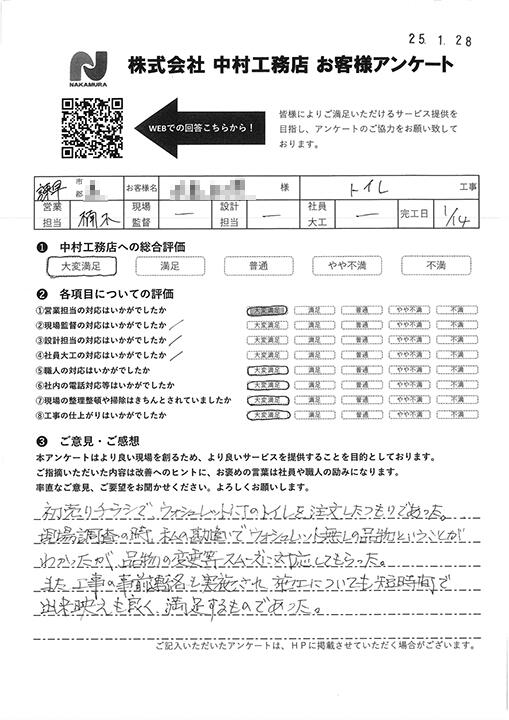 25. 1. 28
NAKAMURA
株式会社 中村工務店 お客様アンケート
WEBでの回答こちらから！
皆様によりご満足いただけるサービス提供を
目指し、アンケートのご協力をお願い致して
おります。
諫早 市 郡 お客様名 様 トイレ 工事
営業担当 楠本 現場監督 ― 設計担当 ― 社員大工 ― 完工日 1/14
❶ 中村工務店への総合評価
大変満足 満足 普通 やや不満 不満
❷ 各項目についての評価
①営業担当の対応はいかがでしたか 大変満足 満足 普通 やや不満 不満
②現場監督の対応はいかがでしたか 大変満足 満足 普通 やや不満 不満
③設計担当の対応はいかがでしたか 大変満足 満足 普通 やや不満 不満
④社員大工の対応はいかがでしたか 大変満足 満足 普通 やや不満 不満
⑤職人の対応はいかがでしたか 大変満足 満足 普通 やや不満 不満
⑥社内の電話対応等はいかがでしたか 大変満足 満足 普通 やや不満 不満
⑦現場の整理整頓や掃除はきちんとされていましたか 大変満足 満足 普通 やや不満 不満
⑧工事の仕上がりはいかがでしたか 大変満足 満足 普通 やや不満 不満
❸ ご意見・ご感想
本アンケートはより良い現場を創るため、より良いサービスを提供することを目的としております。
ご指摘いただいた内容は改善へのヒントに、お褒めの言葉は社員や職人の励みになります。
率直なご意見、ご要望をお聞かせください。よろしくお願いします。
初売りチラシで、ウォシュレット付のトイレを注文したつもりであった。
現場調査の時、私の勘違いでウォシュレット無しの品物ということが
わかったが、品物の変更等スムーズに対応してもらった。
また工事の事前連絡も実施され、施工についても短時間で
出来映えも良く、満足するものであった。
ご記入いただいたアンケートは、HPに掲載させていただく場合がございます。